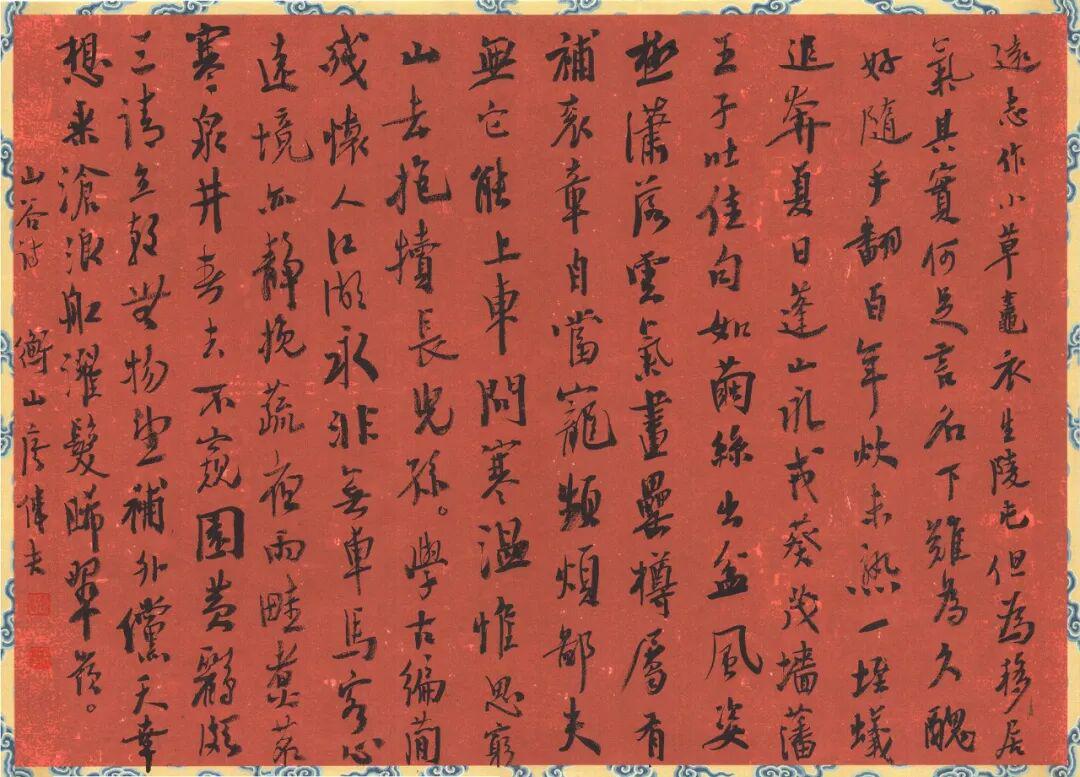 遠志作小草鼃衣生陵屯但為移居
氣其實何足言名下難為久醜
好隨手翻百年炊未熟一垤蟻
追奔夏日蓬山永戎葵茂墻藩
王子吐佳句如繭絲出盆風姿
極瀟落雲氣畫罍樽屬有
補衮章自當寵頻煩鄙夫
無它能上車問寒溫惟思窮
山去抱犢長兒孫。學古編簡
殘懷人江湖永非無車馬客心
遠境亦靜挽蔬夜雨畦煮茗
寒泉井春去不窺園黃鸝頗
三請立朝無物望補外儻天幸
想乘滄浪船濯髮晞翠嶺。
山谷詩
衡山